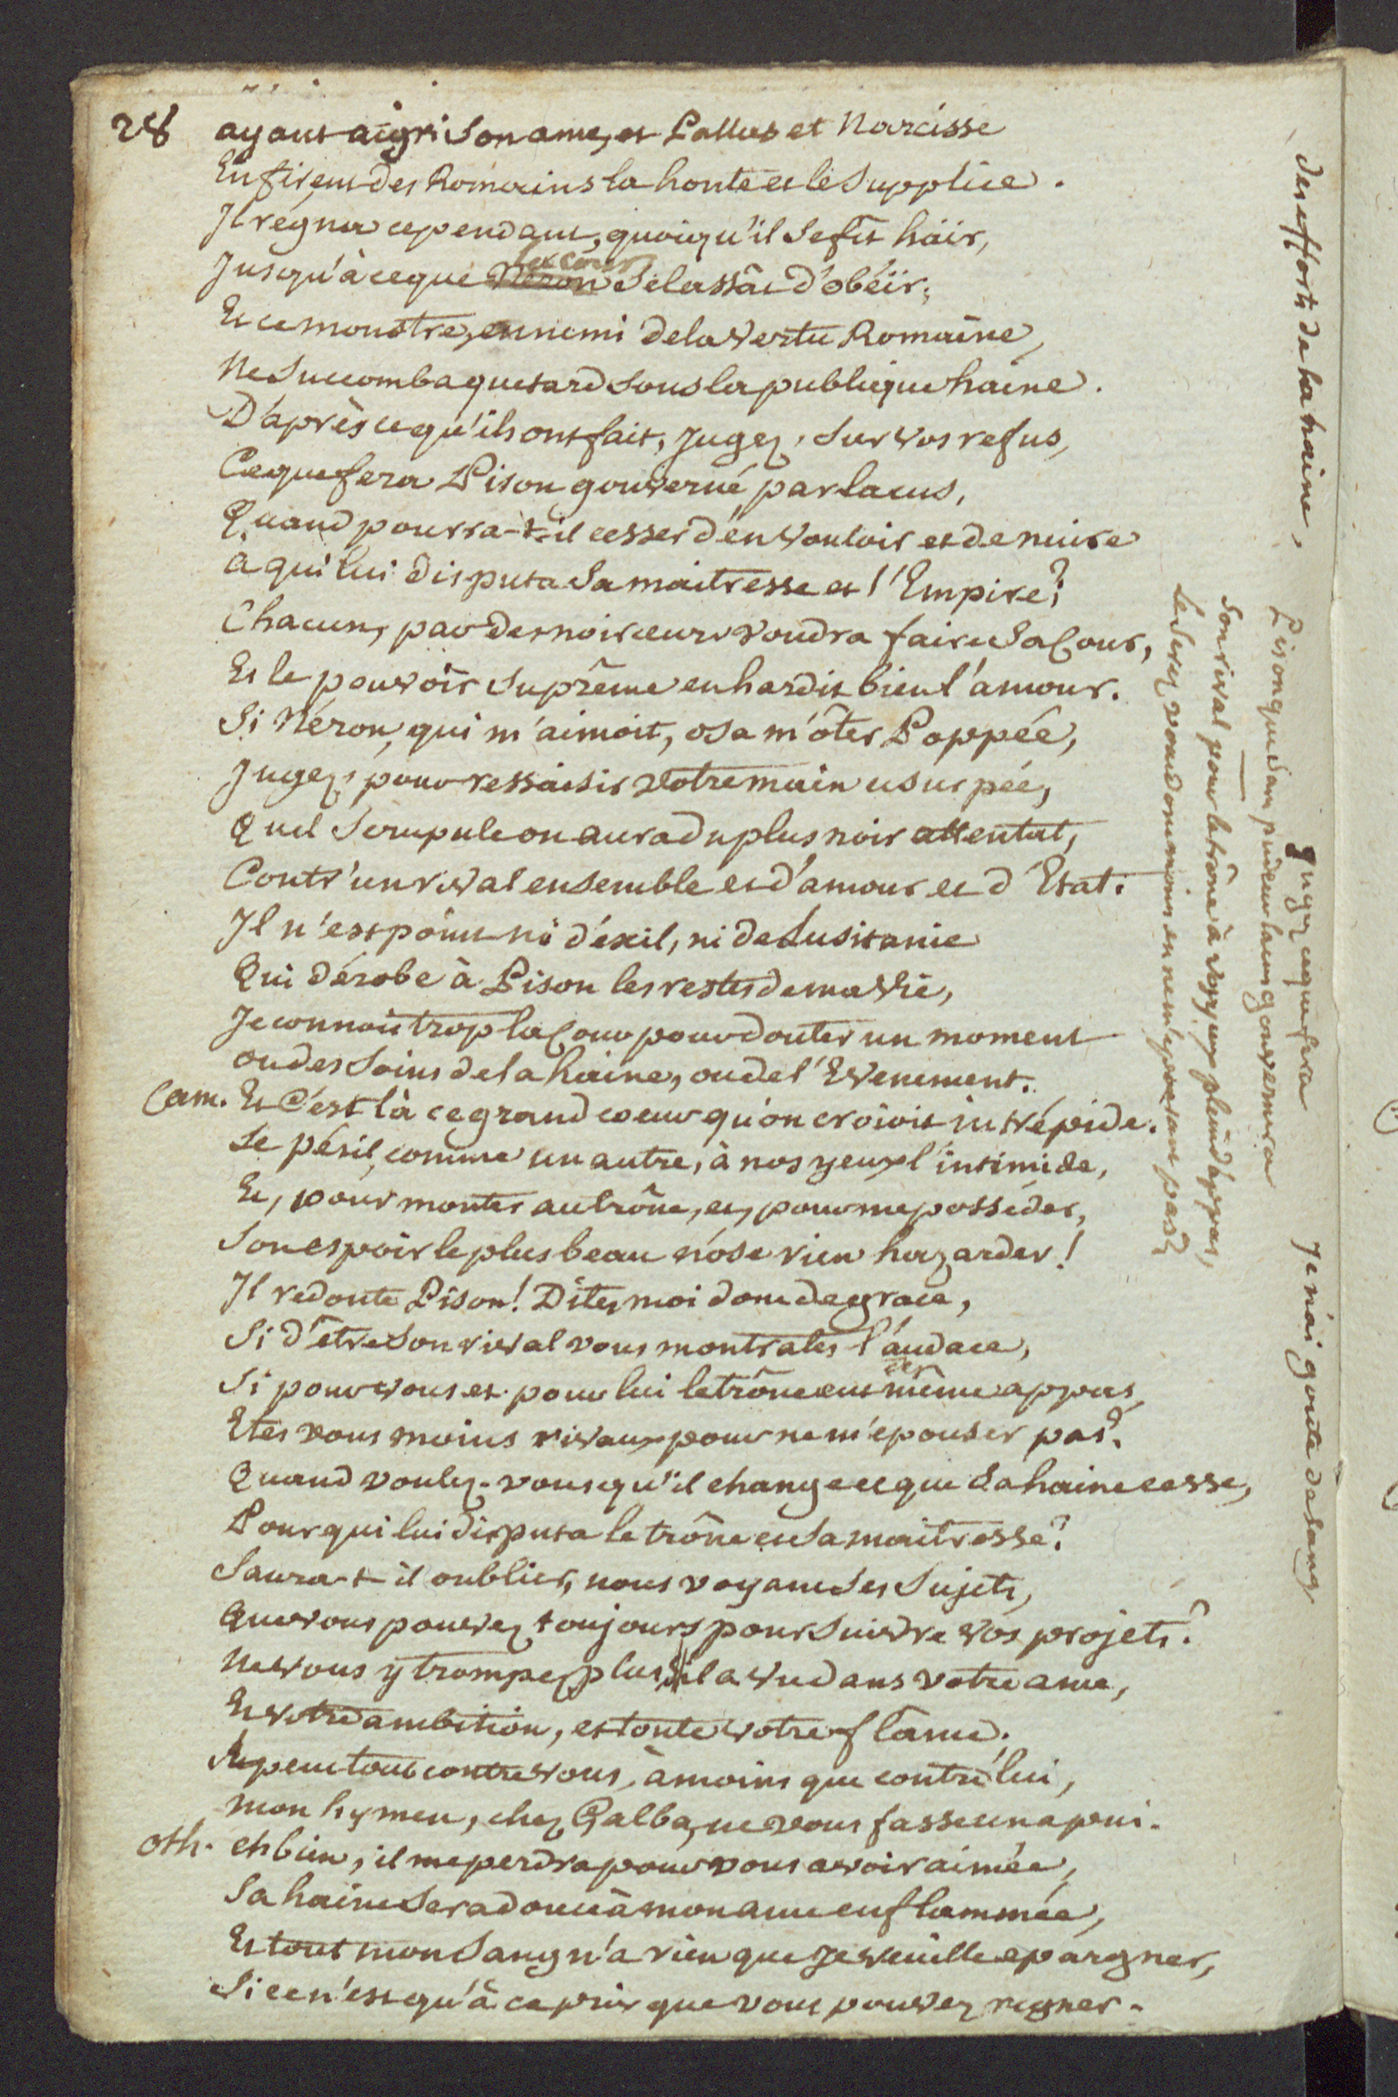 28 ayant aigri Son ame, et Pallas et Narcisse
En firent des Romains la honte et le Supplice.
Il régna cependant, quoiqu'il Se fît haïr,
Jusqu'à ce que Néron Se lassât d'obéir;
Et ce monstre, ennemi de la Vertu Romaine,
Ne Succomba que tard Sous la publique haine.
D'après ce qu'ils ont fait, Jugez, Sur Vos refus,
Ce que fera Pison gouverné par lacus,
Quand pourra-t-il cesser d'en Vouloir et de nuire
a qui lui disputa Sa maitresse et l'Empire?
Chacun, par des noirceurs voudra faire Sa Cour,
Et le pouvoir Suprême enhardit bien l'amour.
Si Néron, qui m'aimoit, osa m'ôter Poppée,
Jugez, pour ressaisir Votre main usurpée,
Quel Scrupule on aura du plus noir attentat,
Contr'un rival ensemble et d'amour et d'Etat.
Il n'est point ni d'éxil, ni de Lusitanie
Qui dérobe à Pison les restes de ma Vie,
Je connois trop la Cour pour douter un moment
ou des Soins de la haine, ou de l'Evenement.
Cam. Et C'est là ce grand coeur qu'on croioit intrépide.
Le péril, comme un autre, à nos yeux l'intimide,
Et, pour monter au trône, et, pour me posséder,
Son espoir le plus beau n'ose rien hazarder!
Il redoute Pison! Dites moi donc de grace,
Si d'être Son rival vous montrates l'audace,
Si pour vous et pour lui le trône eut même appas,
Etes vous moins rivaux pour ne m'epouser pas?
Quand voulez-vous qu'il change et que Sa haine cesse,
Pour qui lui disputa le trône et Sa maitresse?
Saura-t-il oublier, nous voyant Ses Sujets,
Que vous pouvez toujours poursuivre Vos projets?
Ne vous y trompez plus, il a vu dans votre ame,
Et votre ambition, et toute votre flame.
Il peut tout contre vous, à moins que contre lui,
mon hymen, chez Galba, ne vous fasse un apui.
Oth. eh bien, il me perdra pour vous avoir aimée,
Sa haine Sera douce à mon ame enflammée,
Et tout mon Sang n'a rien que Je veuille epargner,
Si ce n'est qu'à ce prix que vous pouvez regner.
des efforts de la haine,
Jugez ce que fera
Pison que Sans pudeur lacus gouvernera
Son rival pour le trône à Vos yeux plein d'appas,
le Serez vous donc moins en ne m'epousant pas?
Je n'ai goute de Sang